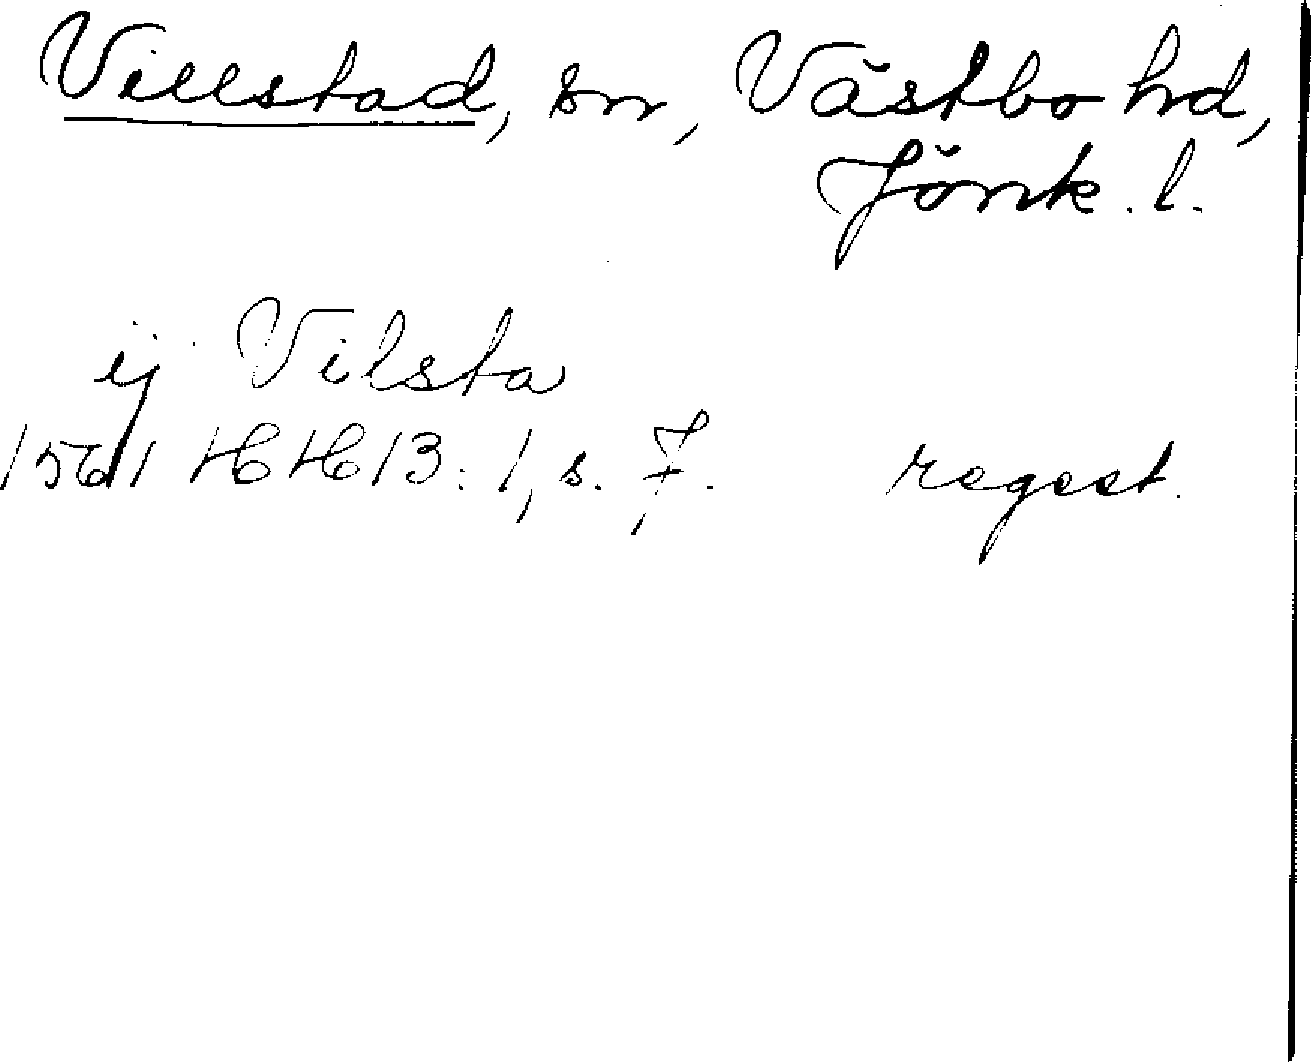 Villstad, sn, Västbo hd,
Jönk. l.
ij Vilsta
1561 HH 13: 1, s. 7. regest.